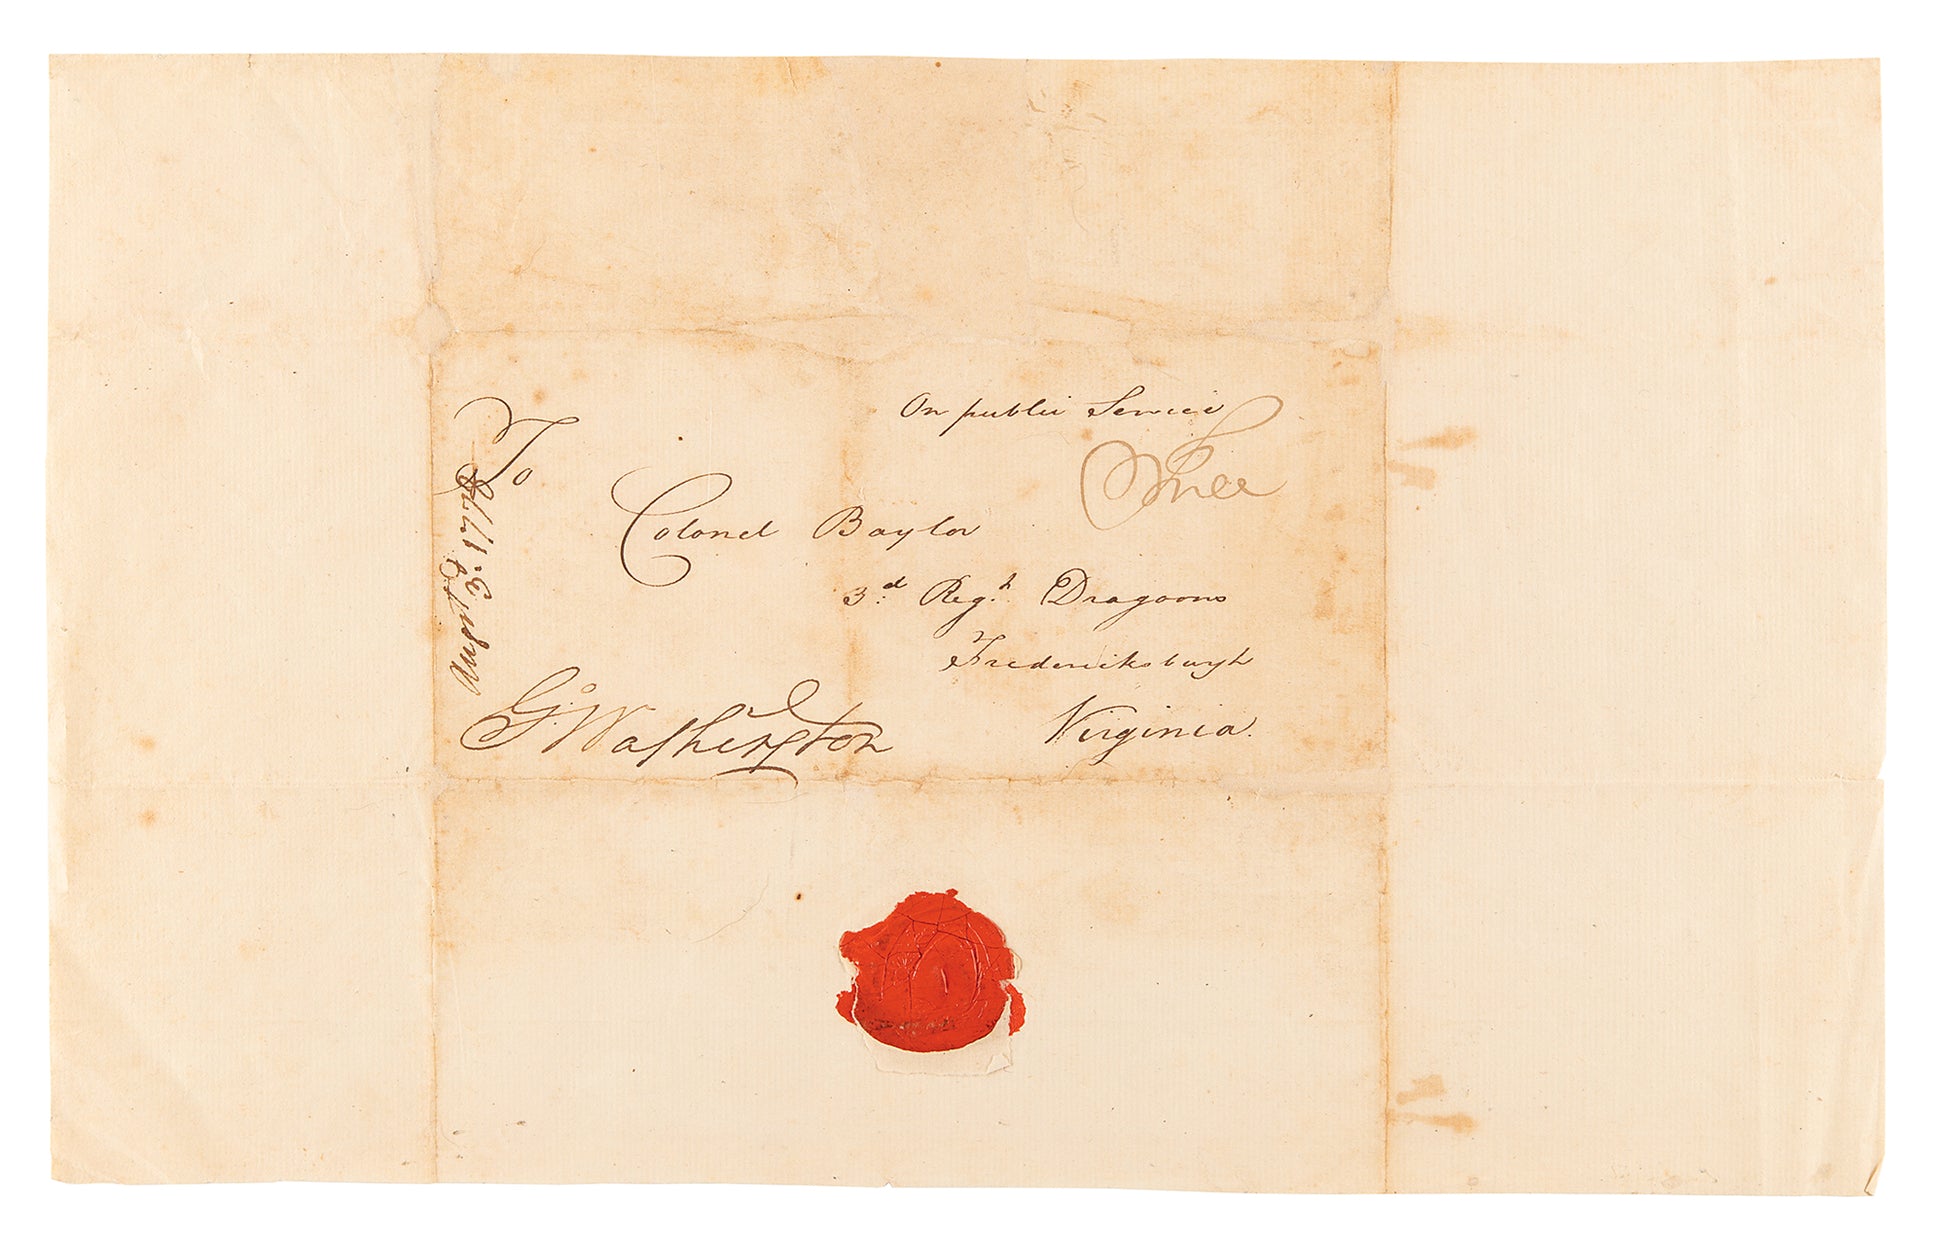 On public Service
Free
To
Colonel Baylor
3.d Reg.t Dragoons
Fredericksburgh
Virginia.
G:o Washington